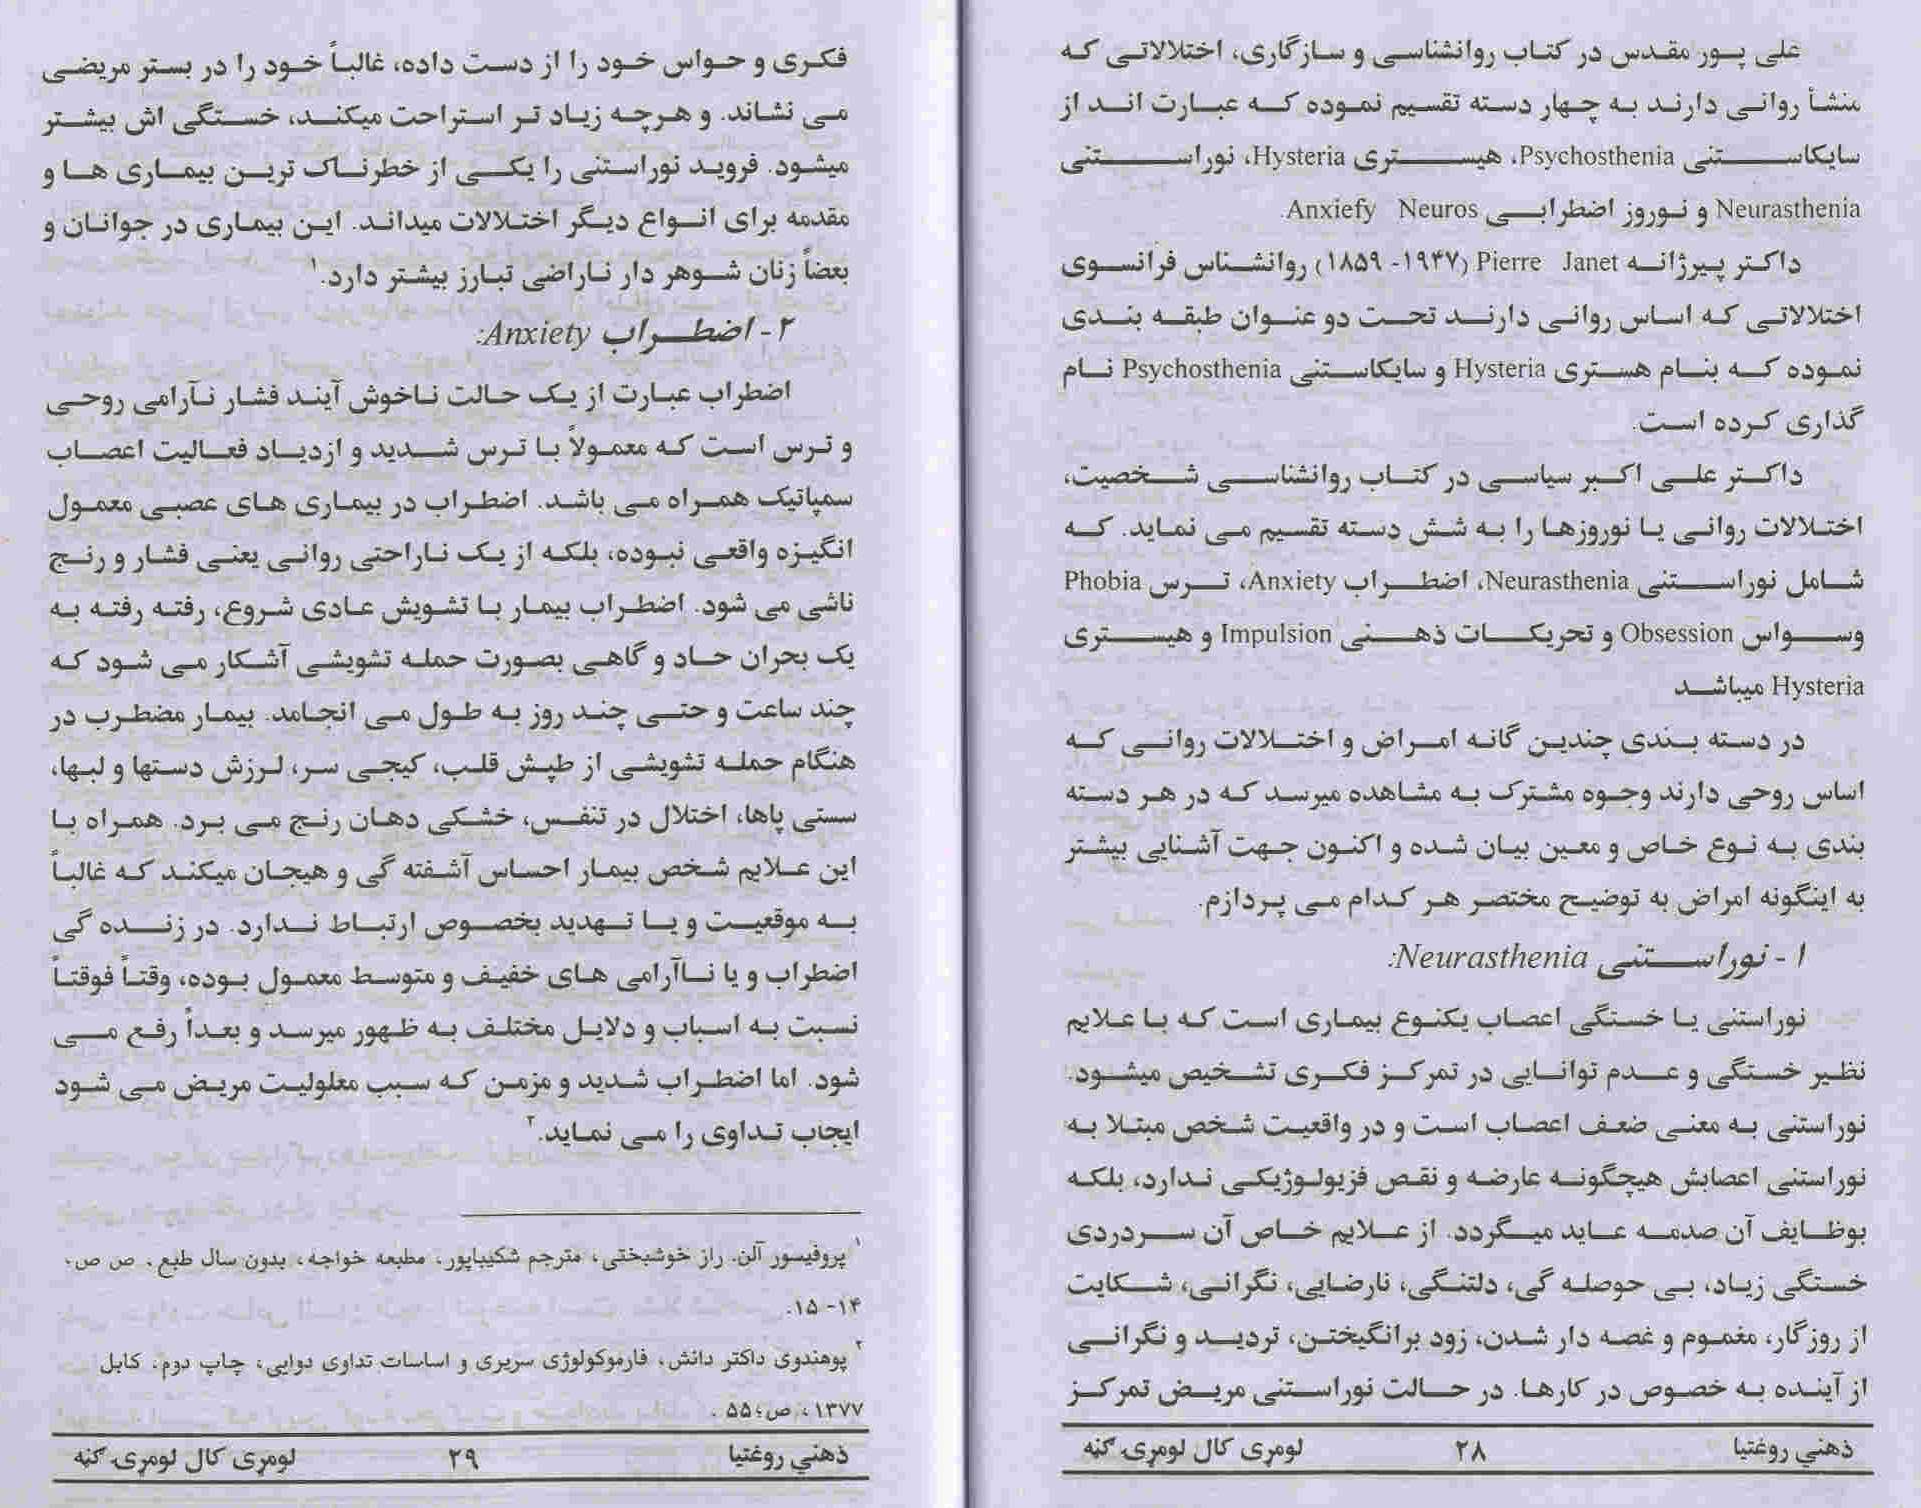 علی پور مقدس در کتاب روانشناسی و سازگاری، اختلالاتی که
منشأ روانی دارند به چهار دسته تقسیم نموده که عبارت اند از
سایکاستنی Psychosthenia، هیستری Hysteria، نوراستنی
Neurasthenia و نوروز اضطرابی Anxiefy Neuros.
داکتر پیرژانه Pierre Janet (۱۹۴۷- ۱۸۵۹) روانشناس فرانسوی
اختلالاتی که اساس روانی دارند تحت دو عنوان طبقه بندی
نموده که بنام هستری Hysteria و سایکاستنی Psychosthenia نام
گذاری کرده است.
داکتر علی اکبر سیاسی در کتاب روانشناسی شخصیت،
اختلالات روانی یا نوروزها را به شش دسته تقسیم می نماید. که
شامل نوراستنی Neurasthenia، اضطراب Anxiety، ترس Phobia
وسواس Obsession و تحریکات ذهنی Impulsion و هیستری
Hysteria میباشد
در دسته بندی چندین گانه امراض و اختلالات روانی که
اساس روحی دارند وجوه مشترک به مشاهده میرسد که در هر دسته
بندی به نوع خاص و معین بیان شده و اکنون جهت آشنایی بیشتر
به اینگونه امراض به توضیح مختصر هر کدام می پردازم.
۱ - نوراستنی Neurasthenia:
نوراستنی یا خستگی اعصاب یکنوع بیماری است که با علایم
نظیر خستگی و عدم توانایی در تمرکز فکری تشخیص میشود.
نوراستنی به معنی ضعف اعصاب است و در واقعیت شخص مبتلا به
نوراستنی اعصابش هیچگونه عارضه و نقص فزیولوژیکی ندارد، بلکه
بوظایف آن صدمه عاید میگردد. از علایم خاص آن سردردی
خستگی زیاد، بی حوصله گی، دلتنگی، نارضایی، نگرانی، شکایت
از روزگار، مغموم و غصه دار شدن، زود برانگیختن، تردید و نگرانی
از آینده به خصوص در کارها. در حالت نوراستنی مریض تمرکز
ذهني روغتیا ۲۸ لومړی کال لومړۍ ګڼه
فکری و حواس خود را از دست داده، غالباً خود را در بستر مریضی
می نشاند. و هرچه زیاد تر استراحت میکند، خستگی اش بیشتر
میشود. فروید نوراستنی را یکی از خطرناک ترین بیماری ها و
مقدمه برای انواع دیگر اختلالات میداند. این بیماری در جوانان و
بعضاً زنان شوهر دار ناراضی تبارز بیشتر دارد.۱
۲- اضطراب Anxiety:
اضطراب عبارت از یک حالت ناخوش آیند فشار نآرامی روحی
و ترس است که معمولاً با ترس شدید و ازدیاد فعالیت اعصاب
سمپاتیک همراه می باشد. اضطراب در بیماری های عصبی معمول
انگیزه واقعی نبوده، بلکه از یک ناراحتی روانی یعنی فشار و رنج
ناشی می شود. اضطراب بیمار با تشویش عادی شروع، رفته رفته به
یک بحران حاد و گاهی بصورت حمله تشویشی آشکار می شود که
چند ساعت و حتی چند روز به طول می انجامد. بیمار مضطرب در
هنگام حمله تشویشی از طپش قلب، کیجی سر، لرزش دستها و لبها،
سستی پاها، اختلال در تنفس، خشکی دهان رنج می برد. همراه با
این علایم شخص بیمار احساس آشفته گی و هیجان میکند که غالباً
به موقعیت و یا تهدید بخصوص ارتباط ندارد. در زنده گی
اضطراب و یا ناآرامی های خفیف و متوسط معمول بوده، وقتاً فوقتاً
نسبت به اسباب و دلایل مختلف به ظهور میرسد و بعداً رفع می
شود. اما اضطراب شدید و مزمن که سبب معلولیت مریض می شود
ایجاب تداوی را می نماید.۲
۱ پروفیسور آلن. راز خوشبختی، مترجم شکیباپور، مطبعه خواجه، بدون سال طبع، ص ص؛
۱۴- ۱۵.
۲ پوهندوی داکتر دانش، فارموکولوژی سریری و اساسات تداوی دوایی، چاپ دوم، کابل
۱۳۷۷، ص؛ ۵۵ .
ذهني روغتیا ۲۹ لومړی کال لومړۍ ګڼه